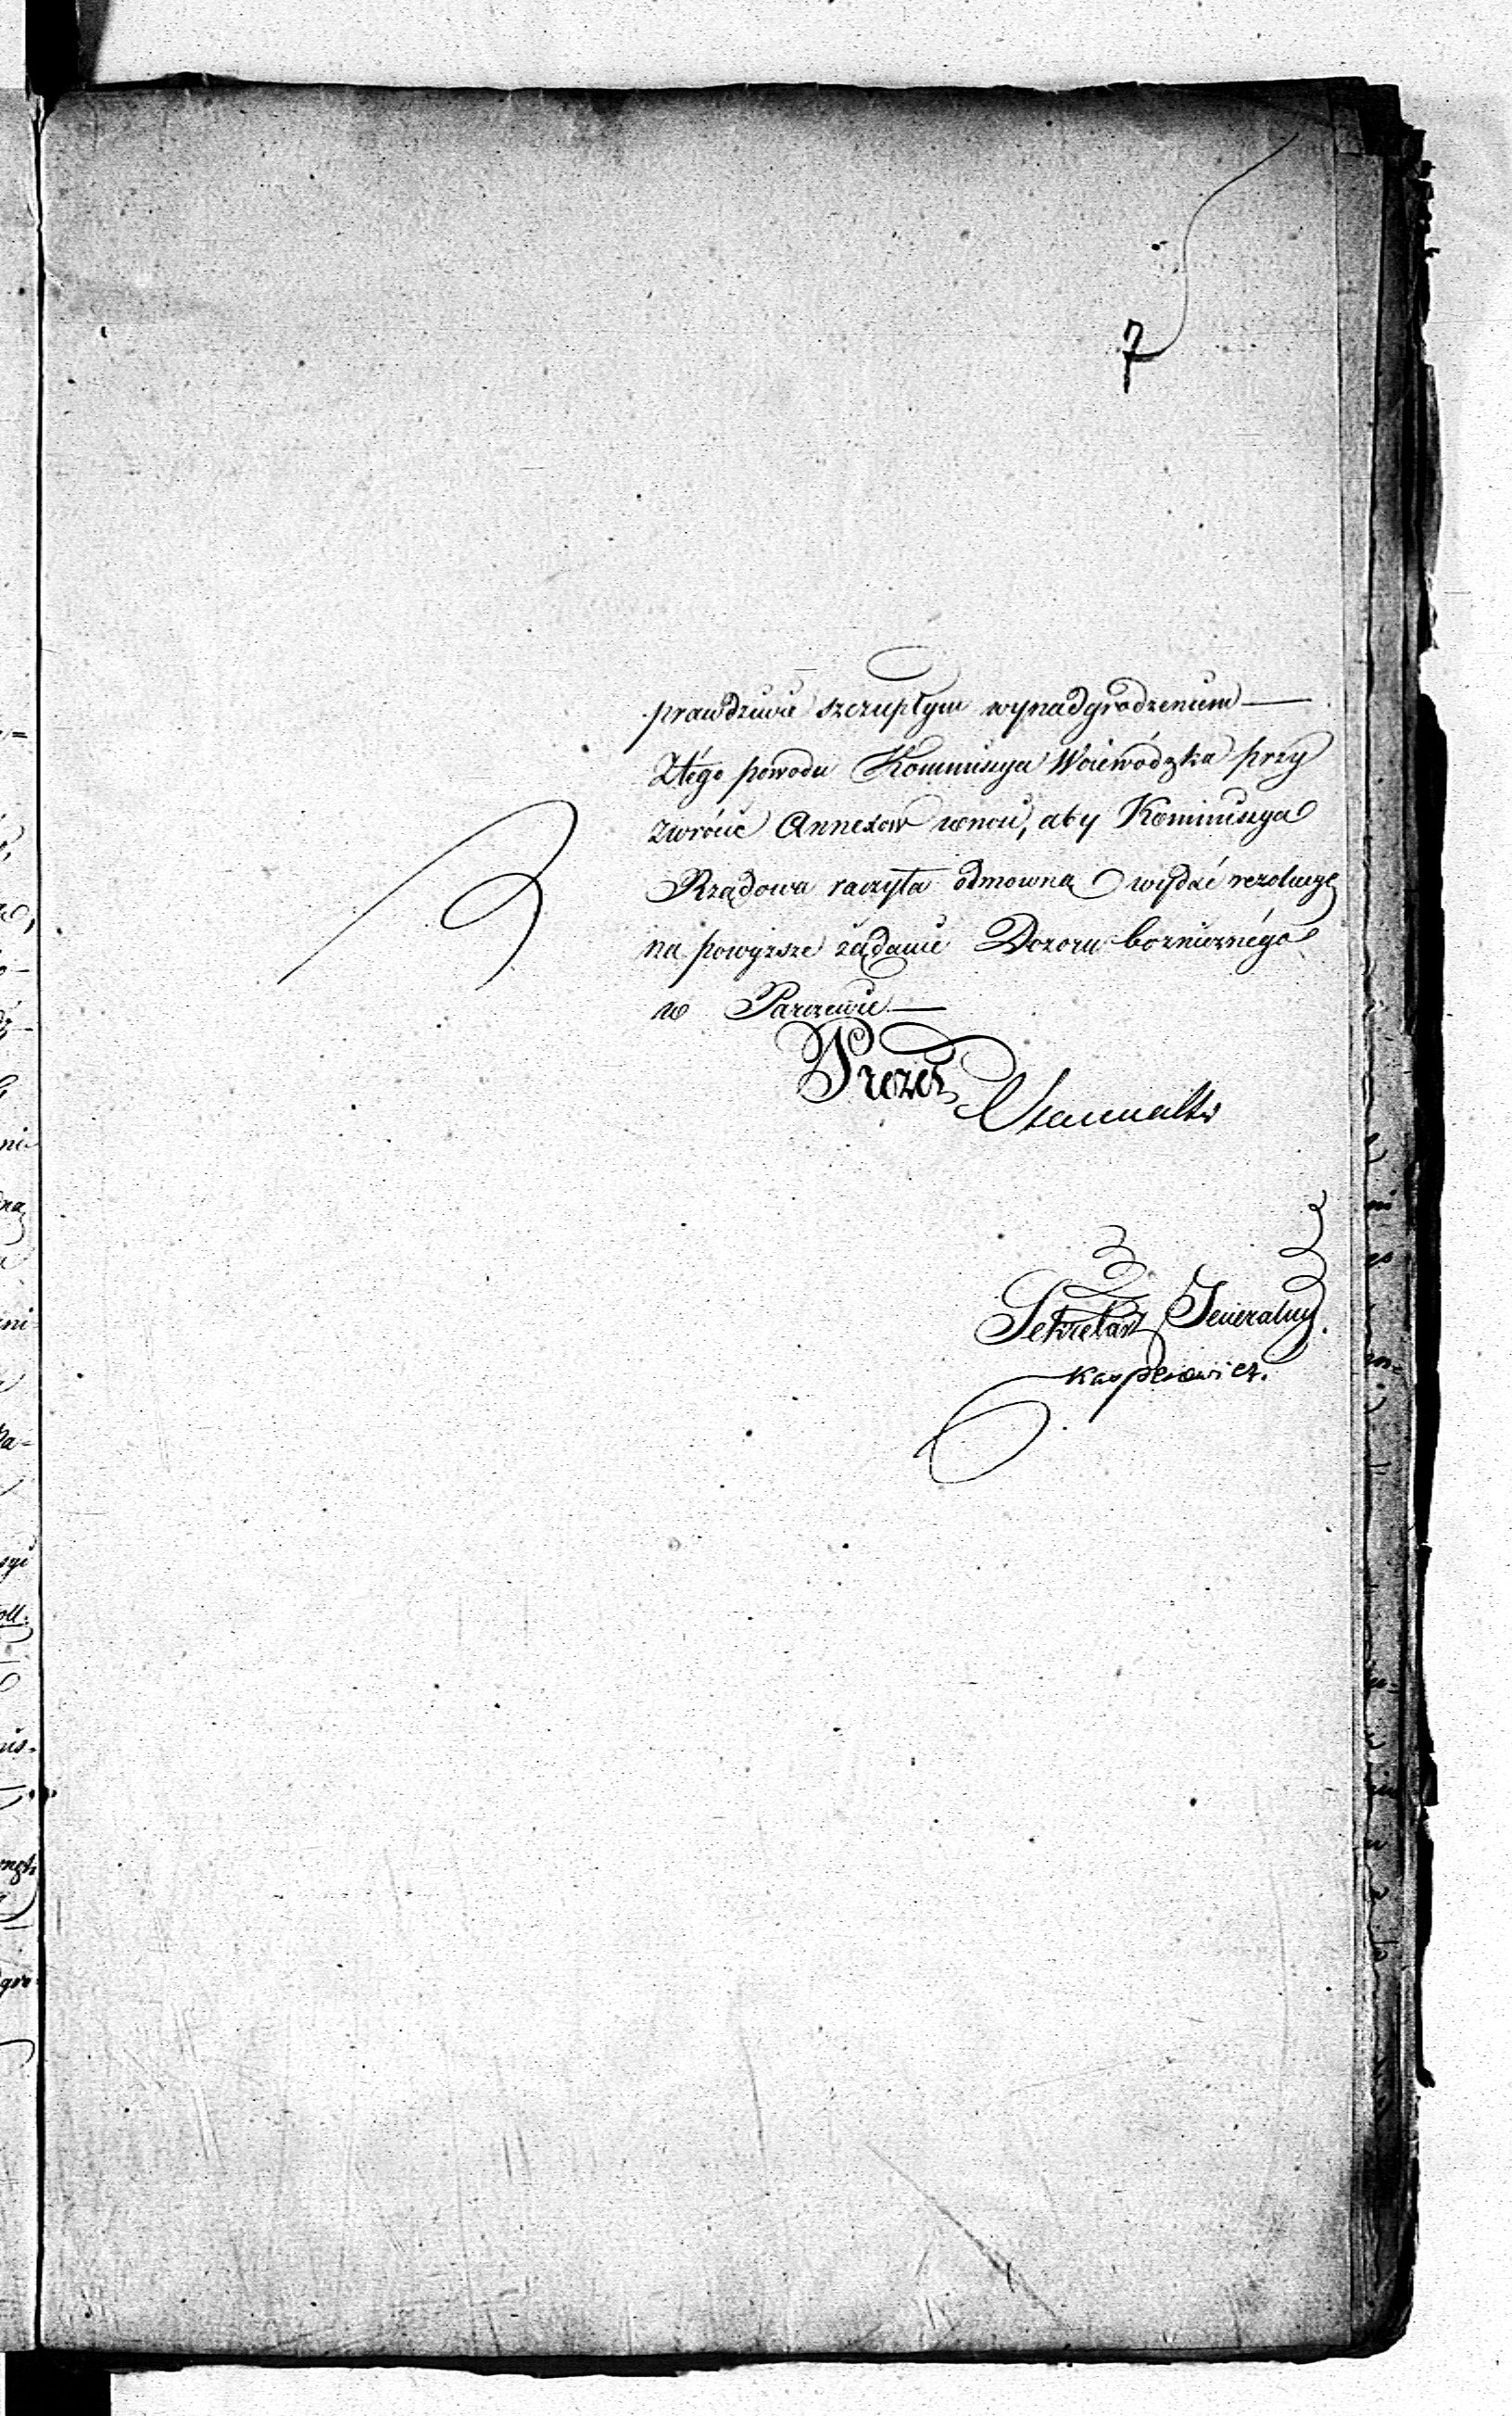 7
prawdziwie szczupłym wynadgrodzeniem —
Ztego powodu Kommissya Woiewódzka przy
zwrócie Annexow wnosi, aby Kommissya
Rządowa raczyła odmowną wydać rezolucyę
na powyższe żądanie Dozoru bożnicznégo
w Parczewie —
Prezes
Sekretarz Jeneralny.
Kasperowicz.